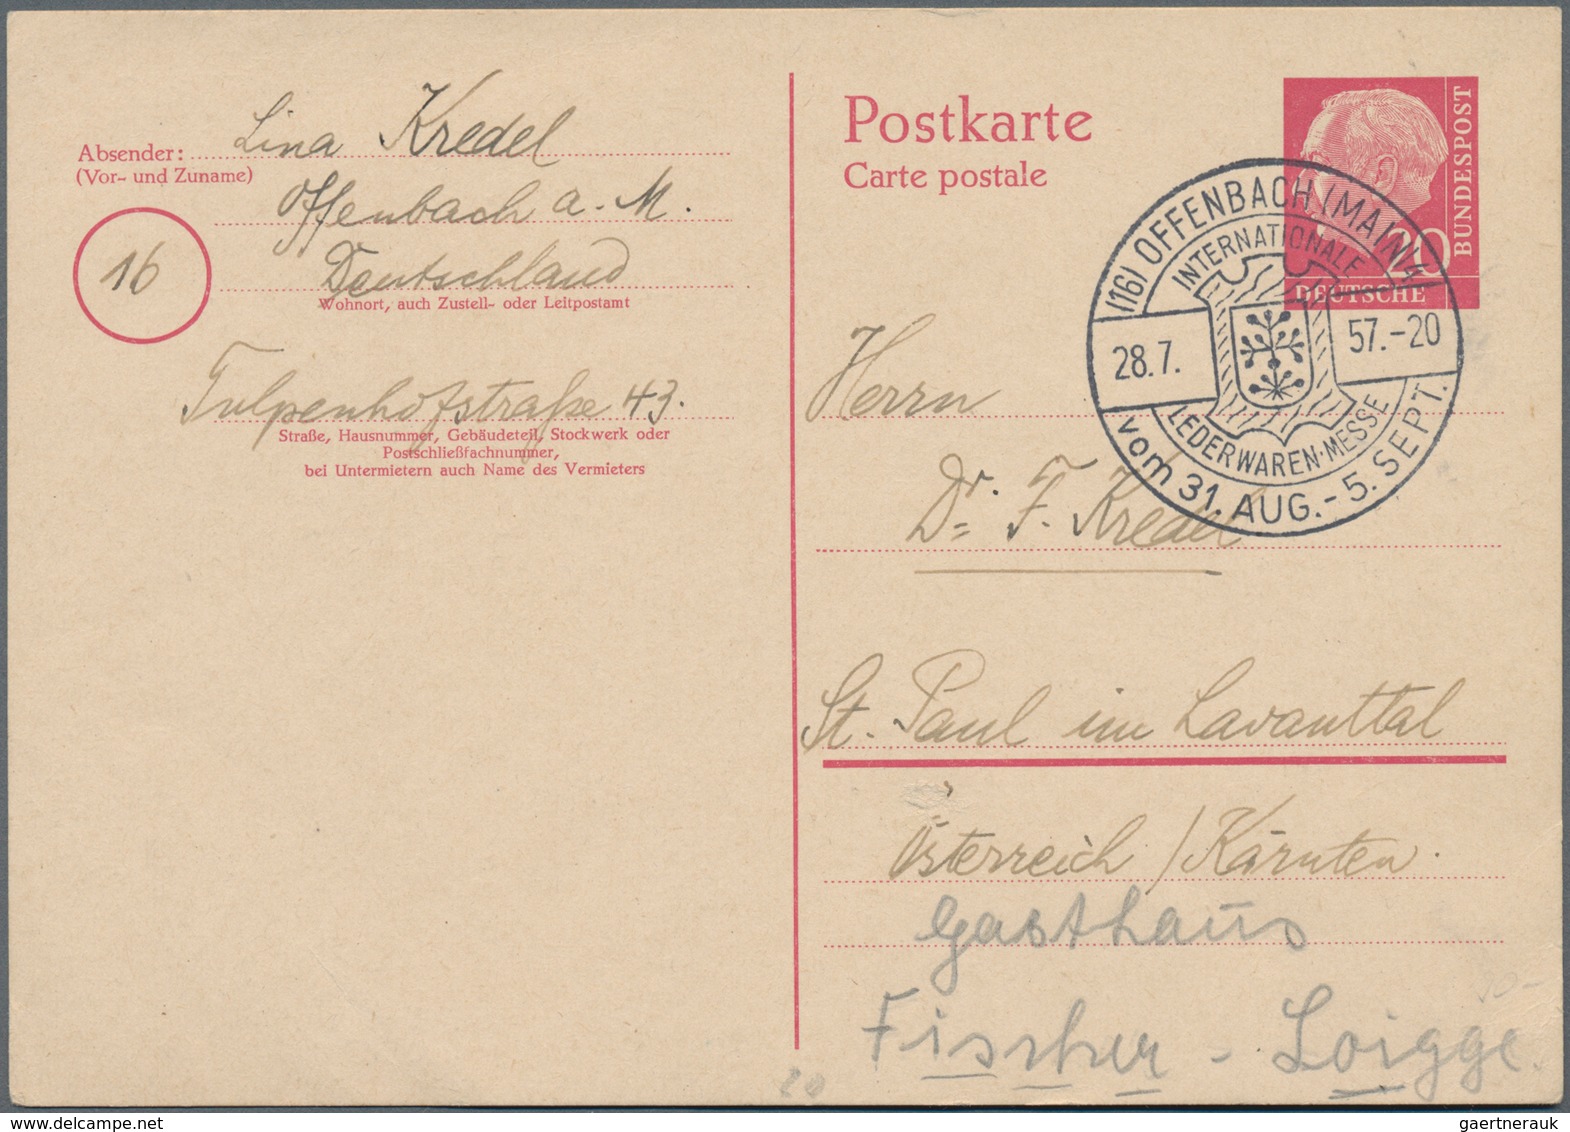 Absender: Lina Kredel
(Vor- und Zuname)
Offenbach a. M.
16
Deutschland
Wohnort, auch Zustell- oder Leitpostamt
Tulpenhofstraße 43.
Straße, Hausnummer, Gebäudeteil, Stockwerk oder
Postschließfachnummer,
bei Untermietern auch Name des Vermieters
Postkarte
Carte postale
DEUTSCHE
BUNDESPOST
20
(16) OFFENBACH (MAIN) 4
INTERNATIONALE
28.7. 57.-20
LEDERWAREN-MESSE
vom 31. AUG. - 5. SEPT.
Herrn
Dr. F. Kredel
St. Paul im Lavanttal
Österreich / Kärnten.
Gasthaus
Fischer - Loigge
20
gaertnerauk@delcampe.net